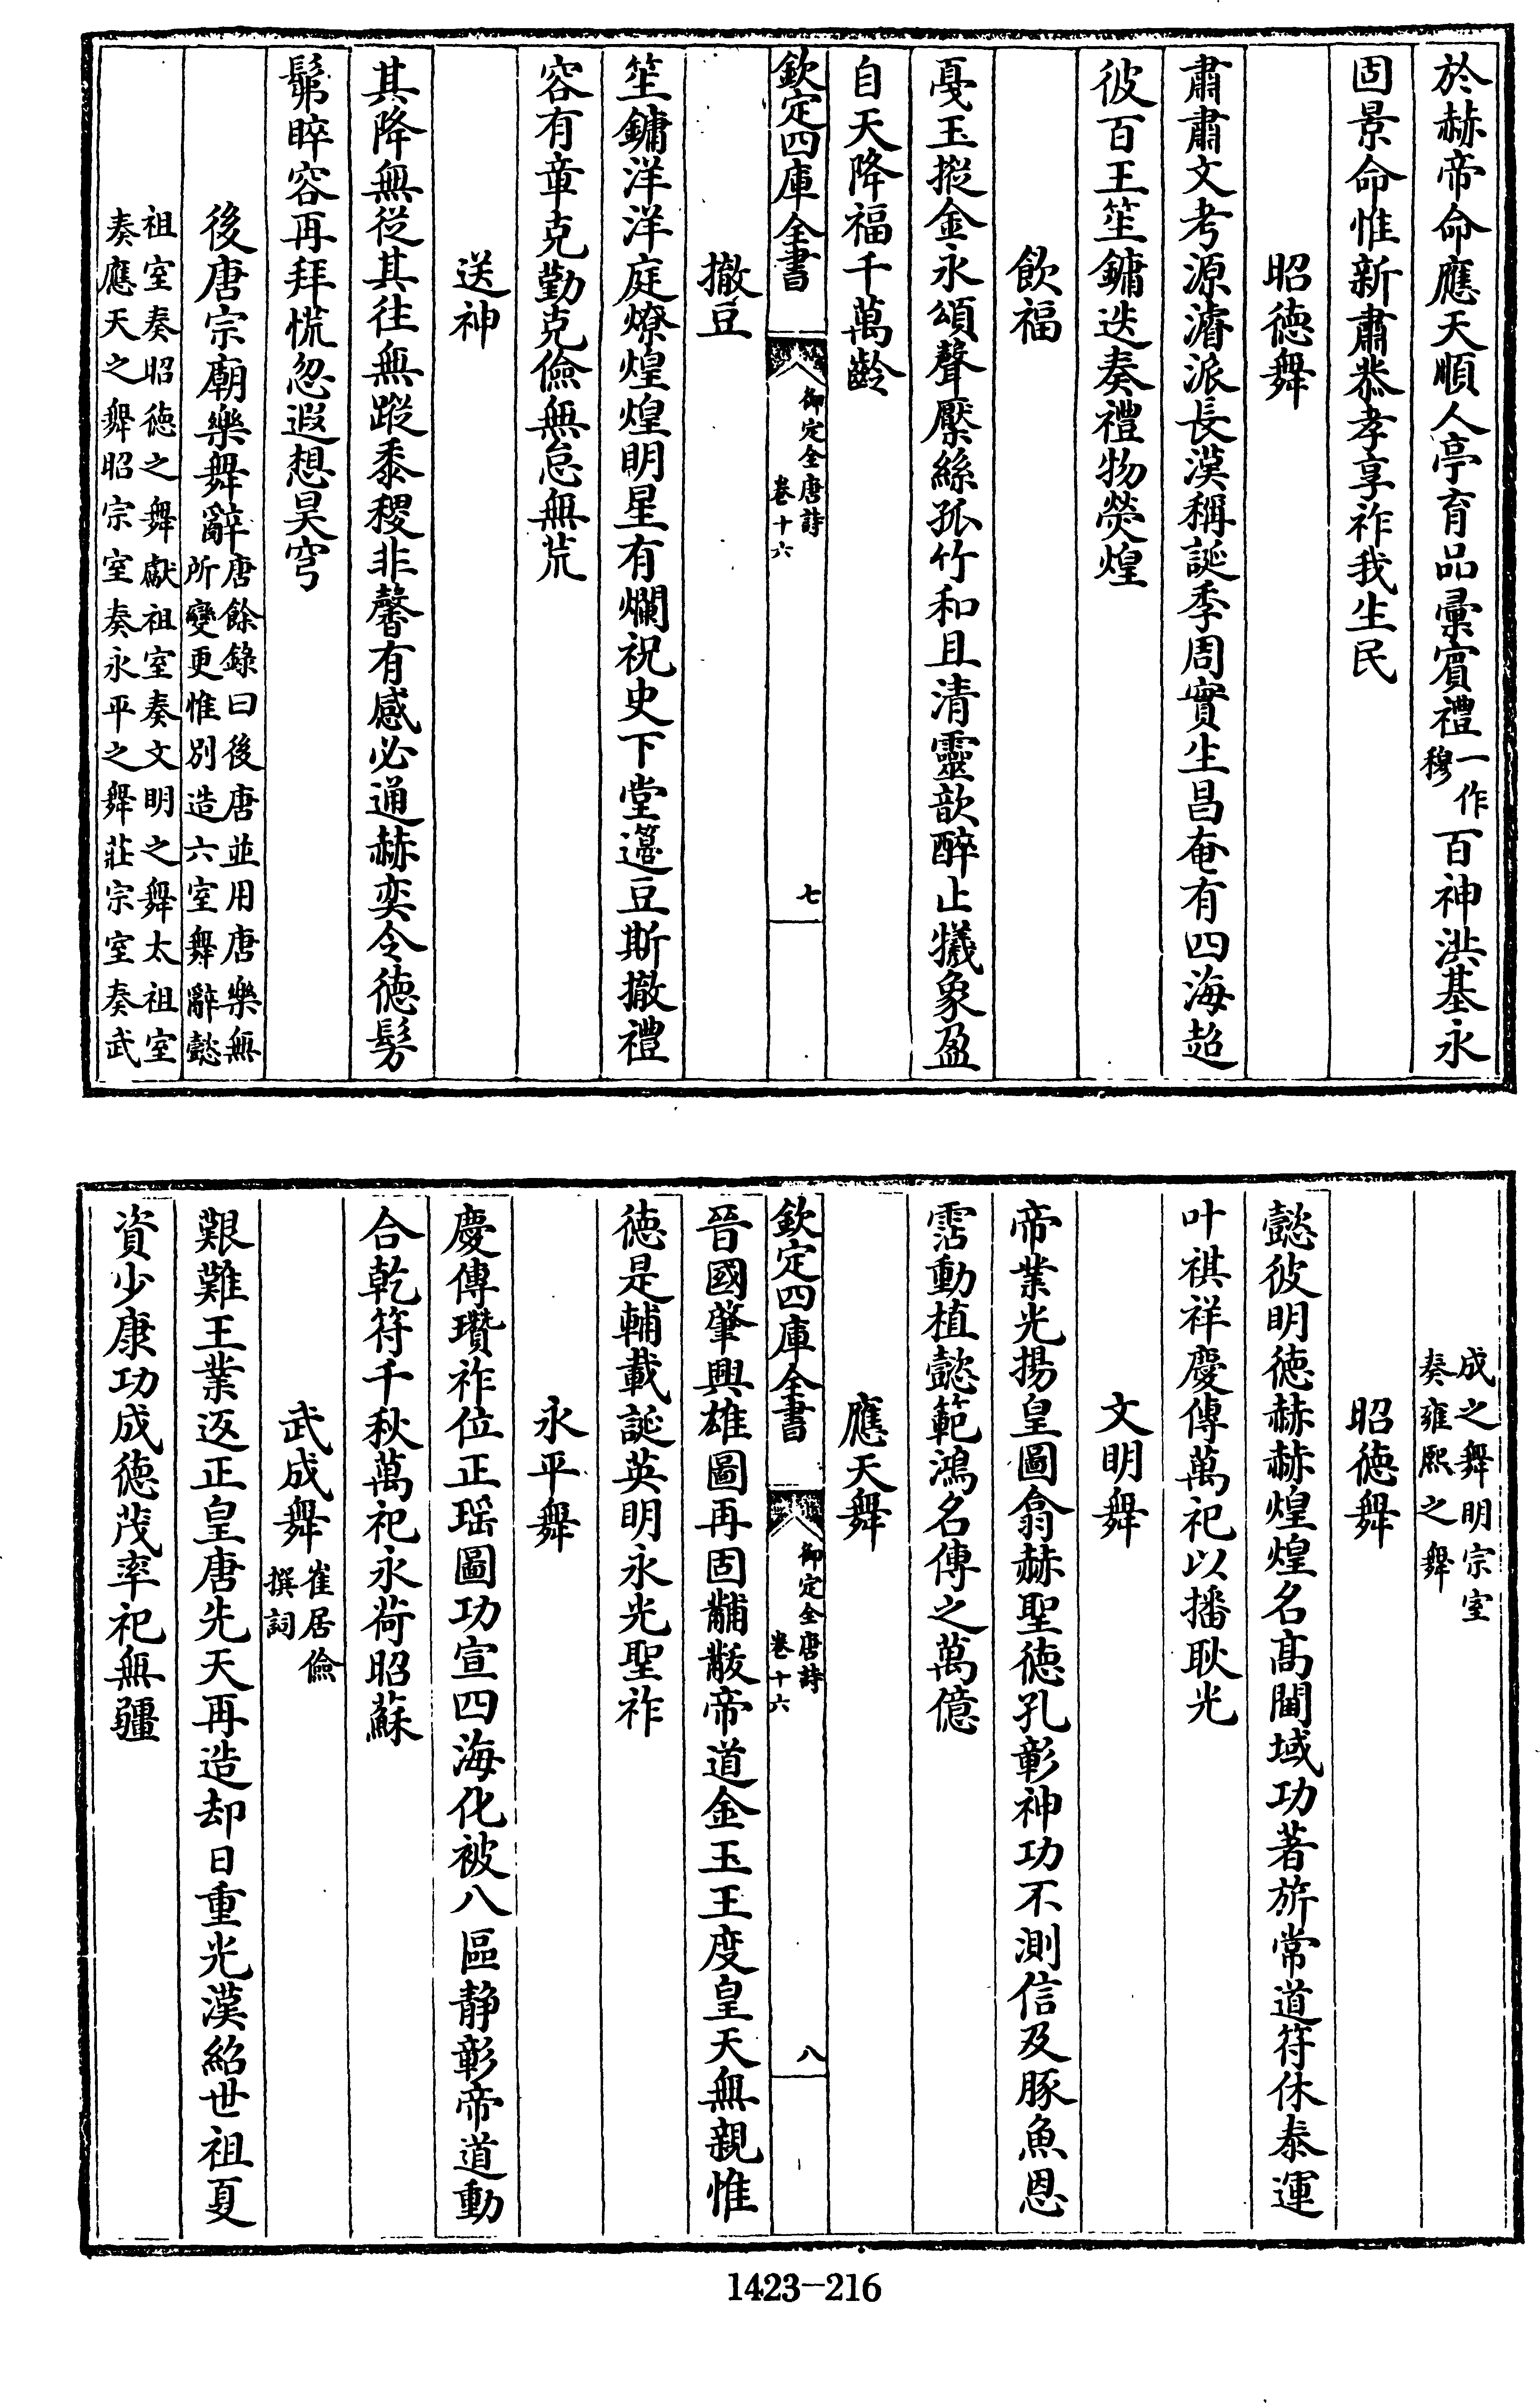 於赫帝命應天順人亭育品彙賓禮一作穆百神洪基永
固景命惟新肅恭孝享祚我生民
昭德舞
肅肅文考源濬派長漢稱誕季周實生昌奄有四海超
彼百王笙鏞迭奏禮物熒煌
飲福
戛玉摐金永頌聲壓絲孤竹和且清靈歆醉止犧象盈
自天降福千萬齡
欽定四庫全書
御定全唐詩
卷十六
七
撤豆
笙鏞洋洋庭燎煌煌明星有爛祝史下堂籩豆斯撤禮
容有章克勤克儉無怠無荒
送神
其降無從其往無蹤黍稷非馨有感必通赫奕令德髣
髴睟容再拜慌忽遐想昊穹
後唐宗廟樂舞辭唐餘錄曰後唐並用唐樂無
所變更惟別造六室舞辭懿
祖室奏昭德之舞獻祖室奏文明之舞太祖室
奏應天之舞昭宗室奏永平之舞莊宗室奏武
成之舞明宗室
奏雍熙之舞
昭德舞
懿彼明德赫赫煌煌名高閫域功著旂常道符休泰運
叶祺祥慶傳萬祀以播耿光
文明舞
帝業光揚皇圖翕赫聖德孔彰神功不測信及豚魚恩
霑動植懿範鴻名傳之萬億
應天舞
欽定四庫全書
御定全唐詩
卷十六
八
晉國肇興雄圖再固黼黻帝道金玉王度皇天無親惟
德是輔載誕英明永光聖祚
永平舞
慶傳瓚祚位正瑶圖功宣四海化被八區静彰帝道動
合乾符千秋萬祀永荷昭蘇
武成舞崔居儉
撰詞
艱難王業返正皇唐先天再造却日重光漢紹世祖夏
資少康功成德茂率祀無疆
1423-216